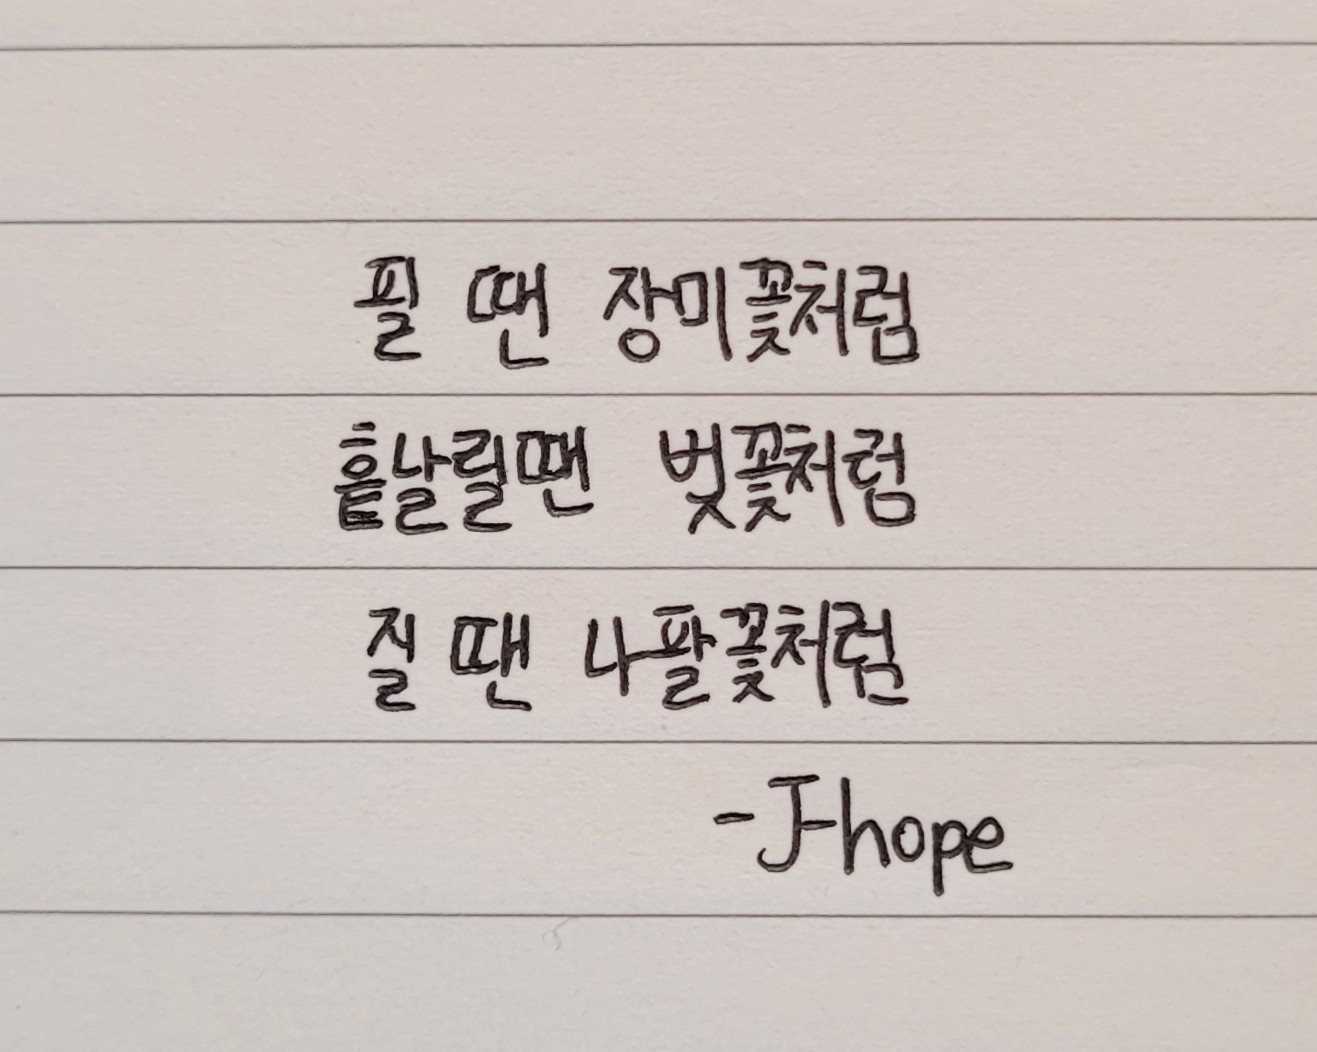 필 땐 장미꽃처럼
흩날릴땐 벚꽃처럼
질 땐 나팔꽃처럼
-J-hope